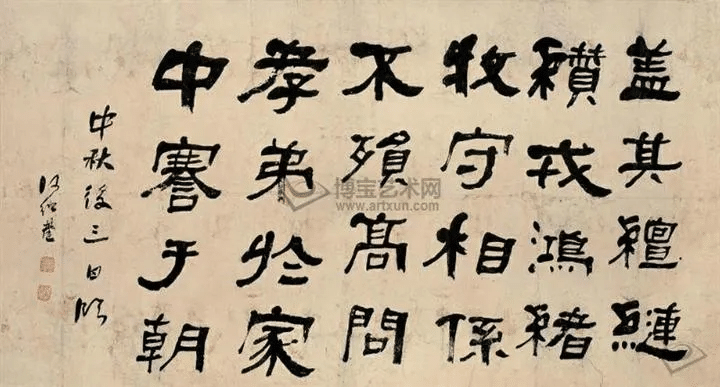 盖其繵縺
纘戎鴻緒
牧守相係
不殞髙問
孝弟於家
中謇于朝
中秋後三日臨
何紹基
博宝艺术网
www.artxun.com